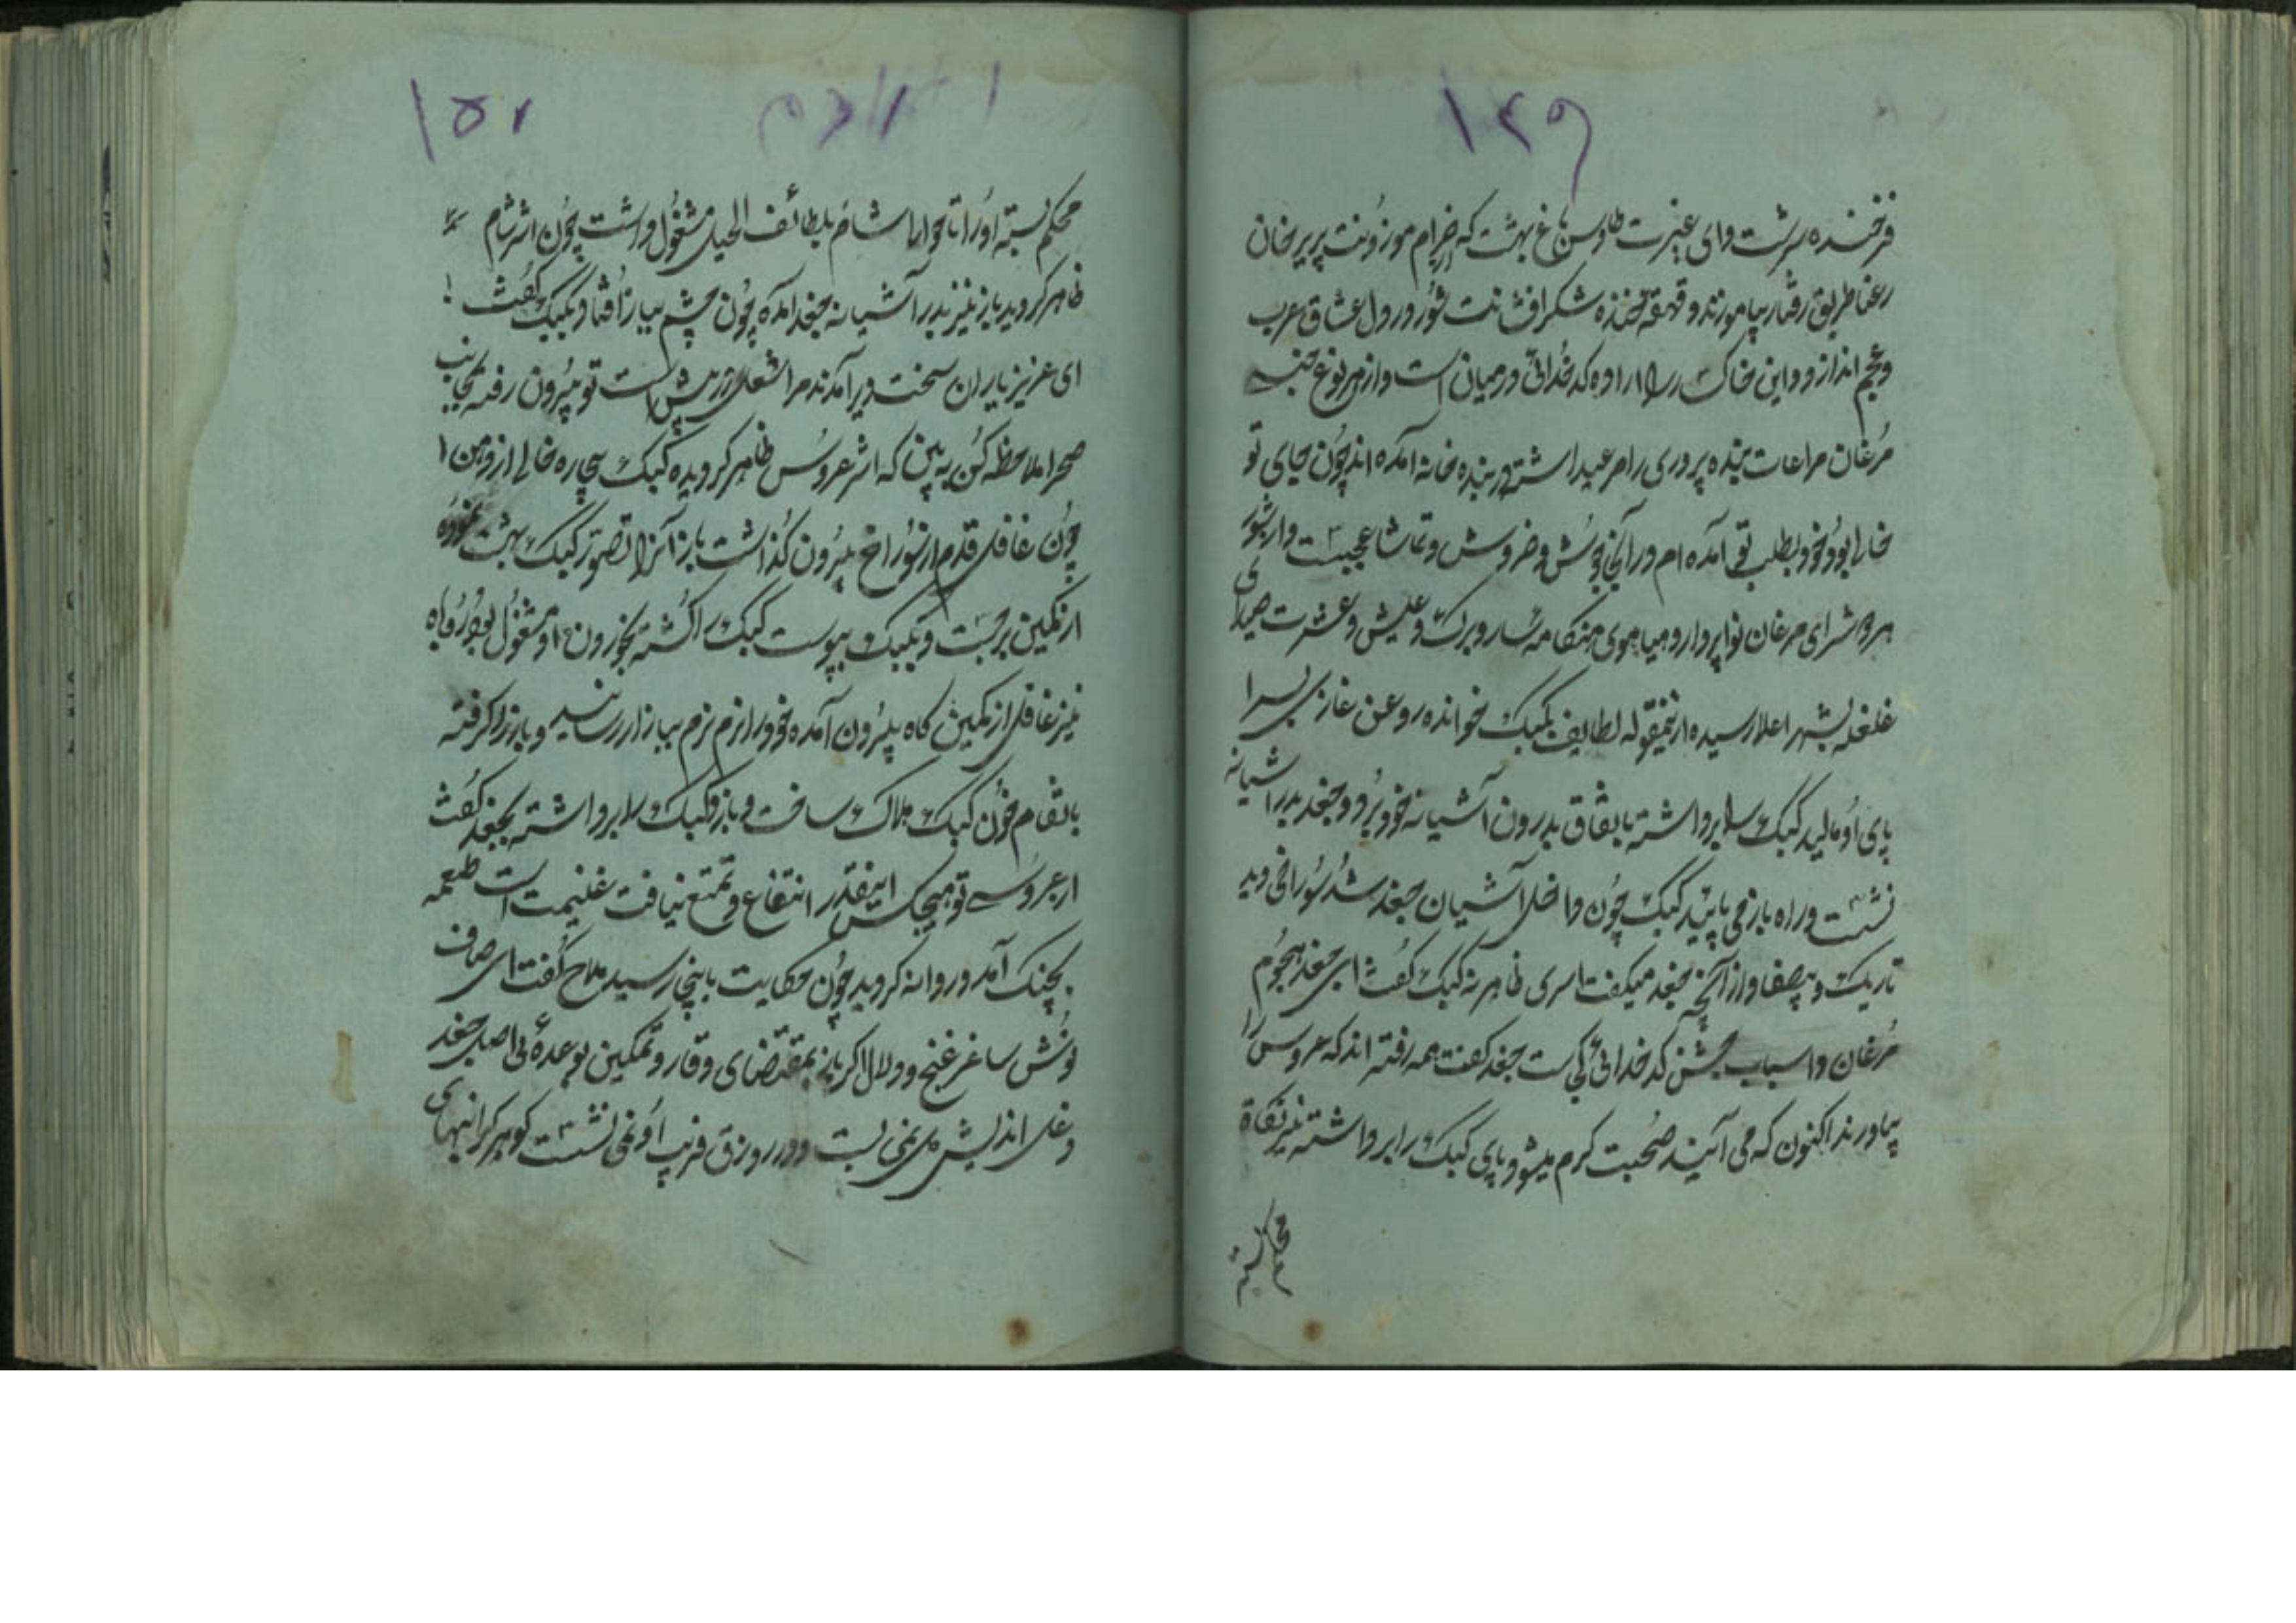 ۱۴۹
فرخنده سرشت وای غیرت طاوس باغ بهشت که خرام موزونت پریرخان
رعنا طریق رفتار بیاموزند و قهقهه خنده شکرافشانت شور در دل عشاق عرب
و عجم اندازد و این خاکسار را اراده کدخدائی در میان است و از هر نوع جنسه
مرغان مراعات بنده پروری را مرعی داشته در بنده خانه آمده اند چون جای تو
خالی بود خود بطلب تو آمده ام در آنجا جوش و خروش و تماشا عجبیست و از شور
سرای مرغان نوا پرداز و هیاهوی هنگامه ساز و برگ و عیش و عشرت صدای
غلغله بشهر اعلا رسیده ازینمقوله لطایف بکبک خوانده روغن غازی بسرا
پای او مالید کبک را برداشته باتفاق بدرون آشیانه خود برد و جغد بدر آشیانه
نشست و راه باز می پائید کبک چون داخل آشیان جغد شد سوراخی دید
تاریک و بیصفا و از آنچه جغد میگفت اسری ظاهر نه کبک گفت ای جغد هجوم
مرغان و اسباب جشن کدخدائی کجاست جغد گفت همه رفته اند که عروس را
بیاورند اکنون که می آیند صحبت گرم میشود پای کبک را برداشته نیز نگاه
محکم بسته
۱۵۰
محکم بسته او را تا حوالی شام بلطائف الحیل مشغول داشت چون اثر شام
ظاهر گردید باز نیز بدر آشیانه جغد آمده چون چشم بباز افتاد بکبک گفت
ای عزیز یاران سخت دیر آمدند مرا شغلی در پیش است تو بیرون رفته بجانب
صحرا ملاحظه کن به بین که اثر عروس ظاهر گردیده کبک بیچاره خالی از ذهن
چون غافل قدم از سوراخ بیرون گذاشت باز آنرا تصور کبک بهشت نموده
از کمین برجست و بکبک پیوست کبک را کشته بخوردن او مشغول بود روباه
نیز غافل از کمین گاه بیرون آمده خود را نرم نرم بباز رسانید و باز را گرفته
بانتقام خون کبک هلاک ساخت و باز و کبک را برداشته بجغد گفت
از عروسی تو هیچکس اینقدر انتفاع و تمتع نیافت غنیمت است طعمه
بچنگ آمد و روانه گردید چون حکایت باینجا رسید ملاح گفت ای صاف
نوش ساغر غنج و دلال اگر باز بمقتضای وقار و تمکین بوعده بی اصل جغد
دغل اندیش دل نمی بست و در زورق فریب او نمی نشست گوهر گرانبهای